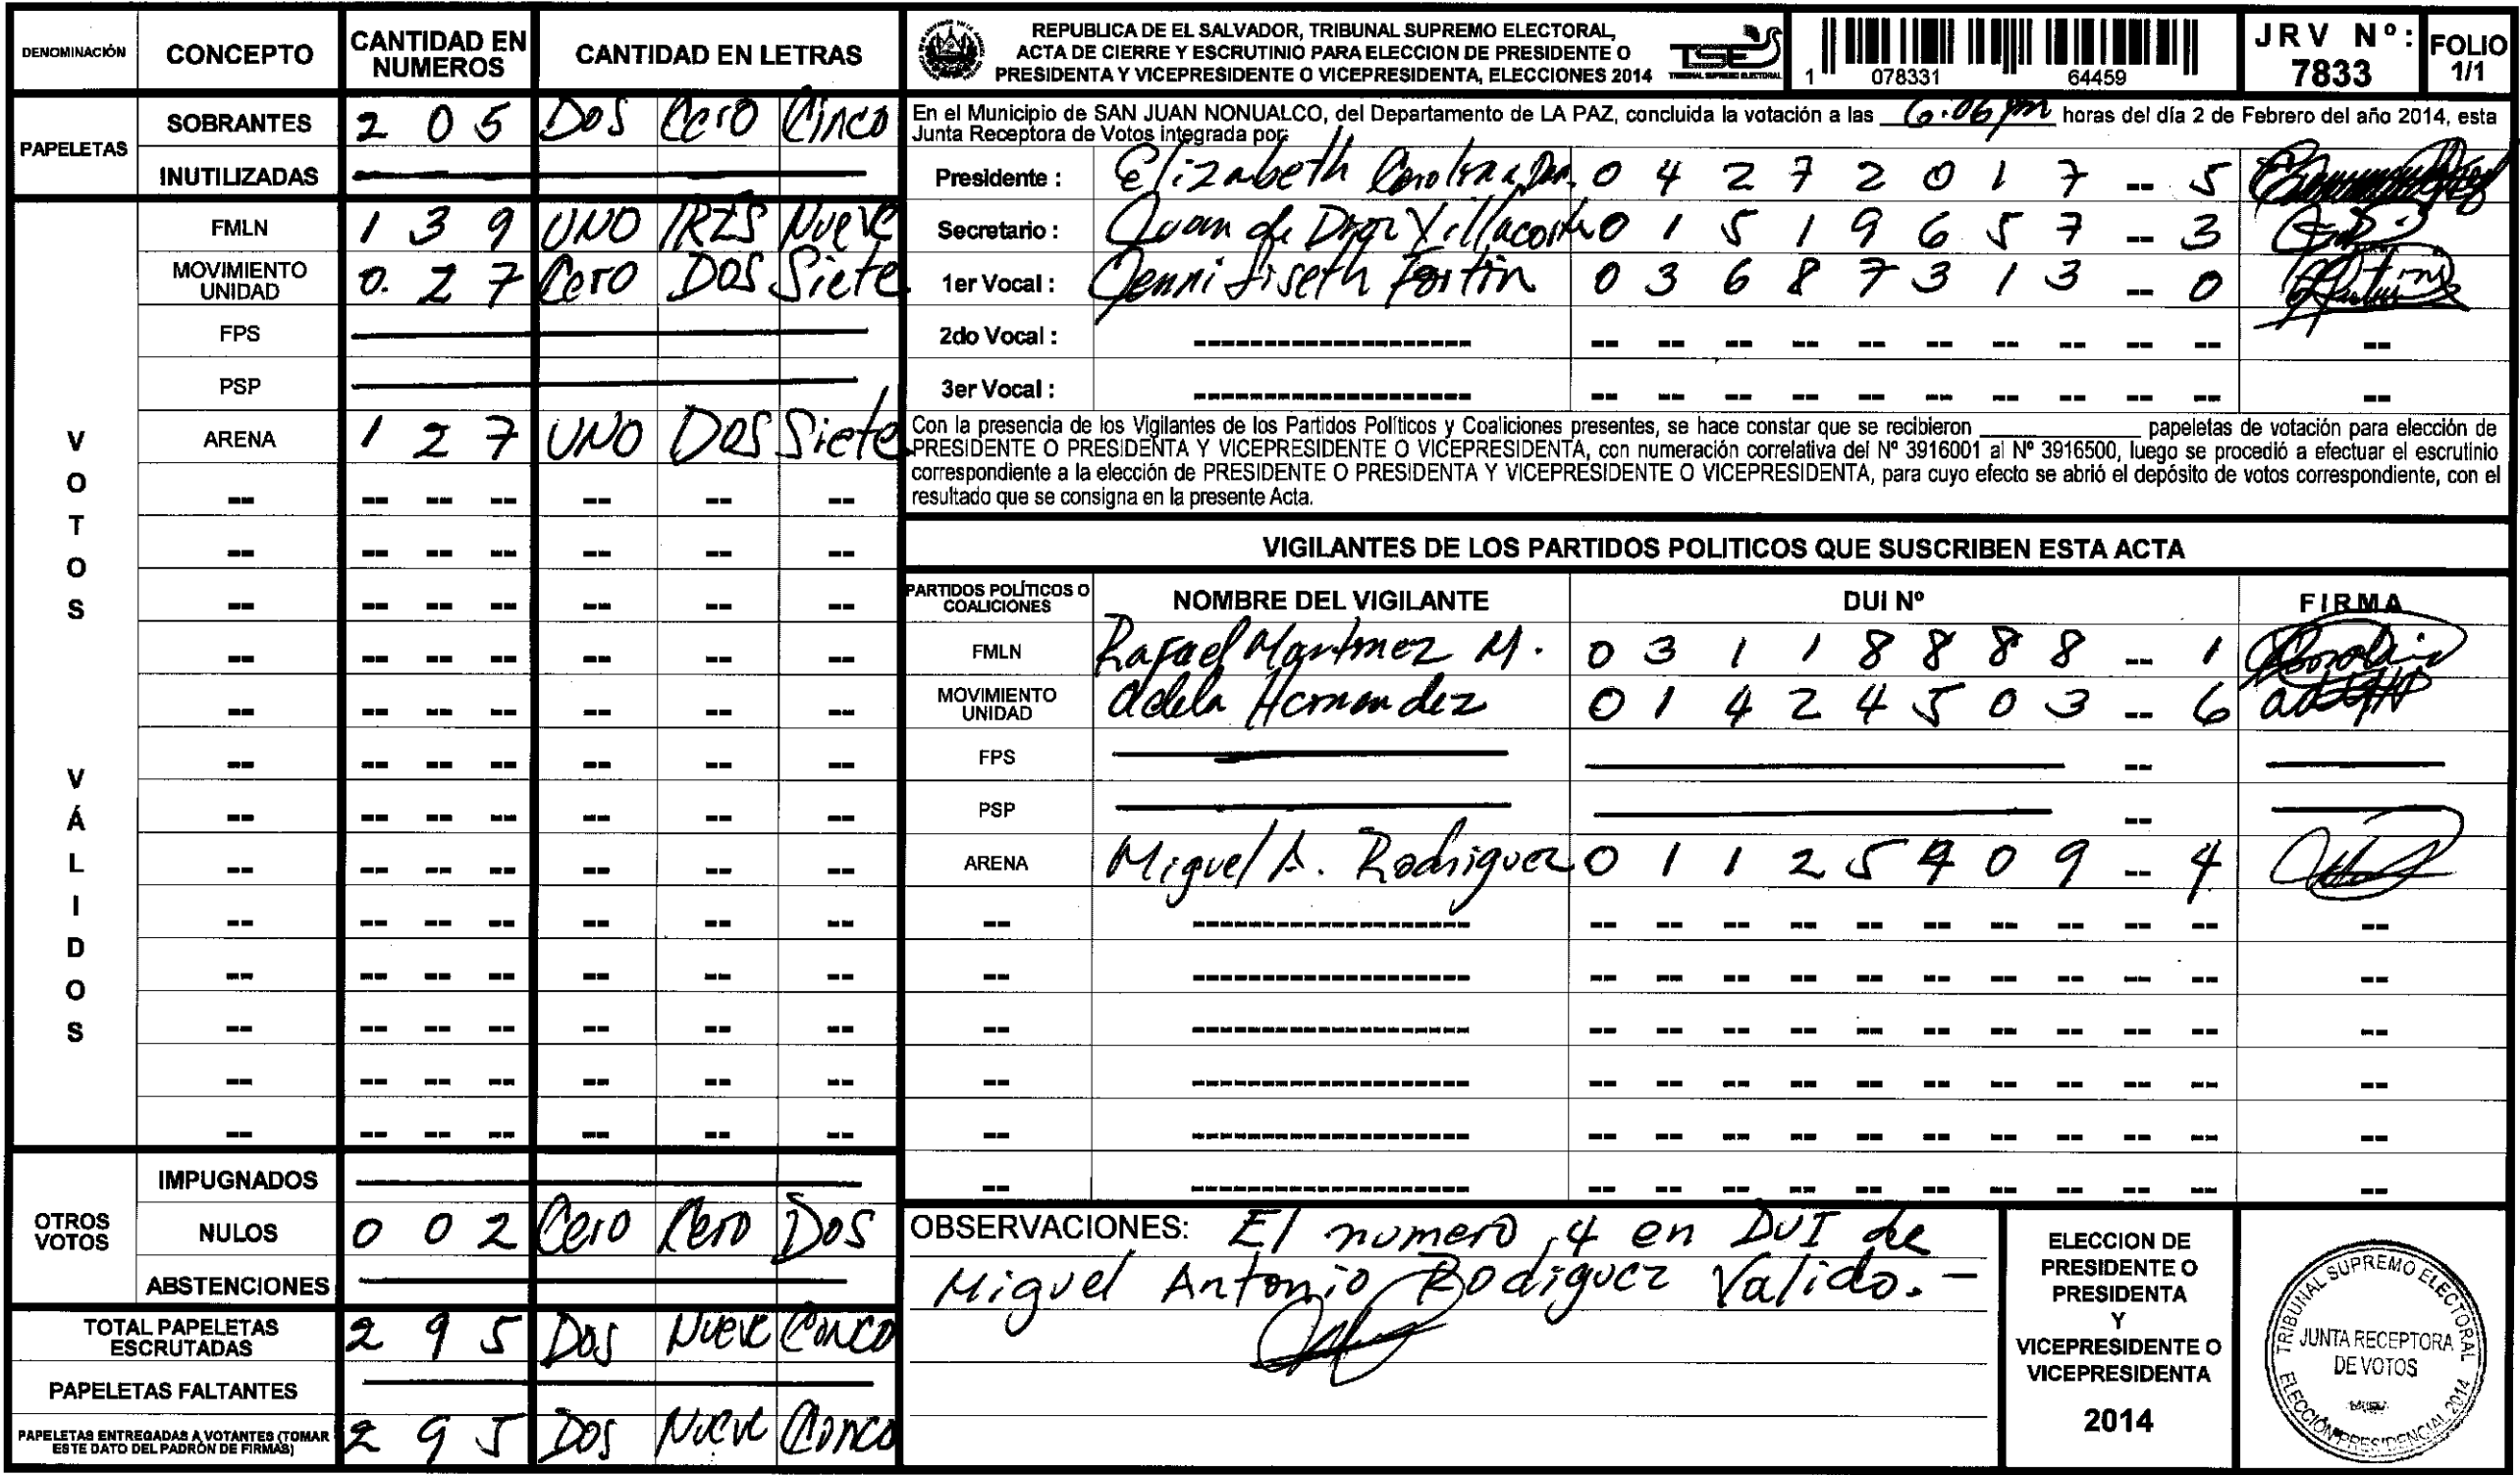 DENOMINACIÓN CONCEPTO CANTIDAD EN NUMEROS CANTIDAD EN LETRAS
PAPELETAS
SOBRANTES 2 0 5 Dos Cero Cinco
INUTILIZADAS
VOTOS VÁLIDOS
FMLN 1 3 9 UNO TRES Nueve
MOVIMIENTO UNIDAD 0. 2 7 Cero DOS Siete
FPS
PSP
ARENA 1 2 7 UNO DOS Siete
-- -- -- -- -- -- --
-- -- -- -- -- -- --
-- -- -- -- -- -- --
-- -- -- -- -- -- --
-- -- -- -- -- -- --
-- -- -- -- -- -- --
-- -- -- -- -- -- --
-- -- -- -- -- -- --
-- -- -- -- -- -- --
-- -- -- -- -- -- --
-- -- -- -- -- -- --
-- -- -- -- -- -- --
-- -- -- -- -- -- --
OTROS VOTOS
IMPUGNADOS
NULOS 0 0 2 Cero Cero Dos
ABSTENCIONES
TOTAL PAPELETAS ESCRUTADAS 2 9 5 Dos Nueve Cinco
PAPELETAS FALTANTES
PAPELETAS ENTREGADAS A VOTANTES (TOMAR ESTE DATO DEL PADRÓN DE FIRMAS) 2 9 5 Dos Nueve Cinco
REPUBLICA DE EL SALVADOR, TRIBUNAL SUPREMO ELECTORAL,
ACTA DE CIERRE Y ESCRUTINIO PARA ELECCION DE PRESIDENTE O
PRESIDENTA Y VICEPRESIDENTE O VICEPRESIDENTA, ELECCIONES 2014
TSE
TRIBUNAL SUPREMO ELECTORAL
1 078331 64459
JRV Nº: 7833
FOLIO 1/1
En el Municipio de SAN JUAN NONUALCO, del Departamento de LA PAZ, concluida la votación a las 6:06 pm horas del día 2 de Febrero del año 2014, esta
Junta Receptora de Votos integrada por:
Presidente : Elizabeth 0 4 2 7 2 0 1 7 -- 5
Secretario : Juan de Dios Villacorta 0 1 5 1 9 6 5 7 -- 3
1er Vocal : Jenni Liseth Fortin 0 3 6 8 7 3 1 3 -- 0
2do Vocal : ------------------- -- -- -- -- -- -- -- -- -- -- --
3er Vocal : ------------------- -- -- -- -- -- -- -- -- -- -- --
Con la presencia de los Vigilantes de los Partidos Políticos y Coaliciones presentes, se hace constar que se recibieron ______ papeletas de votación para elección de
PRESIDENTE O PRESIDENTA Y VICEPRESIDENTE O VICEPRESIDENTA, con numeración correlativa del Nº 3916001 al Nº 3916500, luego se procedió a efectuar el escrutinio
correspondiente a la elección de PRESIDENTE O PRESIDENTA Y VICEPRESIDENTE O VICEPRESIDENTA, para cuyo efecto se abrió el depósito de votos correspondiente, con el
resultado que se consigna en la presente Acta.
VIGILANTES DE LOS PARTIDOS POLITICOS QUE SUSCRIBEN ESTA ACTA
PARTIDOS POLÍTICOS O COALICIONES NOMBRE DEL VIGILANTE DUI Nº FIRMA
FMLN Rafael Martinez M. 0 3 1 1 8 8 8 8 -- 1
MOVIMIENTO UNIDAD Adela Hernandez 0 1 4 2 4 5 0 3 -- 6
FPS --
PSP --
ARENA Miguel A. Rodriguez 0 1 1 2 5 4 0 9 -- 4
-- ------------------- -- -- -- -- -- -- -- -- -- -- --
-- ------------------- -- -- -- -- -- -- -- -- -- -- --
-- ------------------- -- -- -- -- -- -- -- -- -- -- --
-- ------------------- -- -- -- -- -- -- -- -- -- -- --
-- ------------------- -- -- -- -- -- -- -- -- -- -- --
-- ------------------- -- -- -- -- -- -- -- -- -- -- --
OBSERVACIONES: El numero 4 en DUI de
Miguel Antonio Rodiguez Valido. -
ELECCION DE
PRESIDENTE O
PRESIDENTA
Y
VICEPRESIDENTE O
VICEPRESIDENTA
2014
TRIBUNAL SUPREMO ELECTORAL
JUNTA RECEPTORA
DE VOTOS
ELECCIÓN PRESIDENCIAL 2014